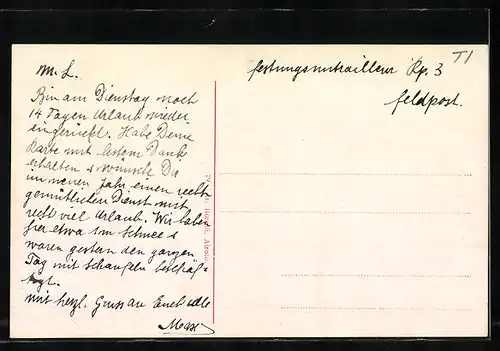 M. L.
Bin am Dienstag nach
14 Tagen Urlaub wieder
eingerückt. Habe Deine
Karte mit bestem Dank
erhalten & wünsche Dir
im neuen Jahr einen recht
gemütlichen Dienst mit
recht viel Urlaub. Wir haben
hier etwa 1m Schnee &
waren gestern den ganzen
Tag mit Schaufeln beschäf-
tigt.
Mit herzl. Gruss an Euch alle
Max
Festungsmitrailleur Kp. 3
Feldpost.
T1
Airolo